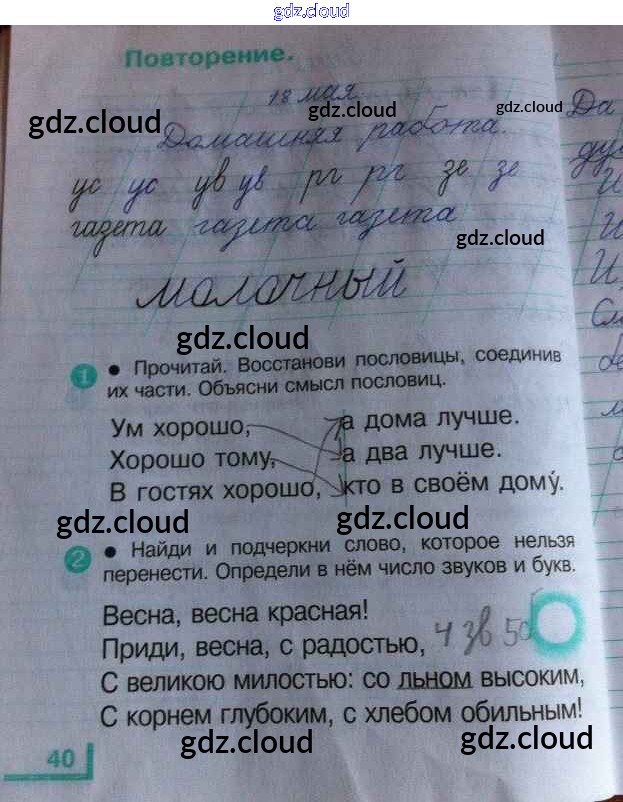 gdz.cloud
Повторение.
18 мая
gdz.cloud gdz.cloud gdz.cloud
Домашняя работа. Да
ус ус ув ув рг рг зе зе
газета газета газета
gdz.cloud
молочный
gdz.cloud
1 • Прочитай. Восстанови пословицы, соединив
их части. Объясни смысл пословиц.
Ум хорошо, а дома лучше.
Хорошо тому, а два лучше.
В гостях хорошо, кто в своём дому́.
gdz.cloud gdz.cloud
2 • Найди и подчеркни слово, которое нельзя
перенести. Определи в нём число звуков и букв.
Весна, весна красная!
Приди, весна, с радостью, 4 зв 5 б
С великою милостью: со льном высоким,
С корнем глубоким, с хлебом обильным!
gdz.cloud gdz.cloud
40